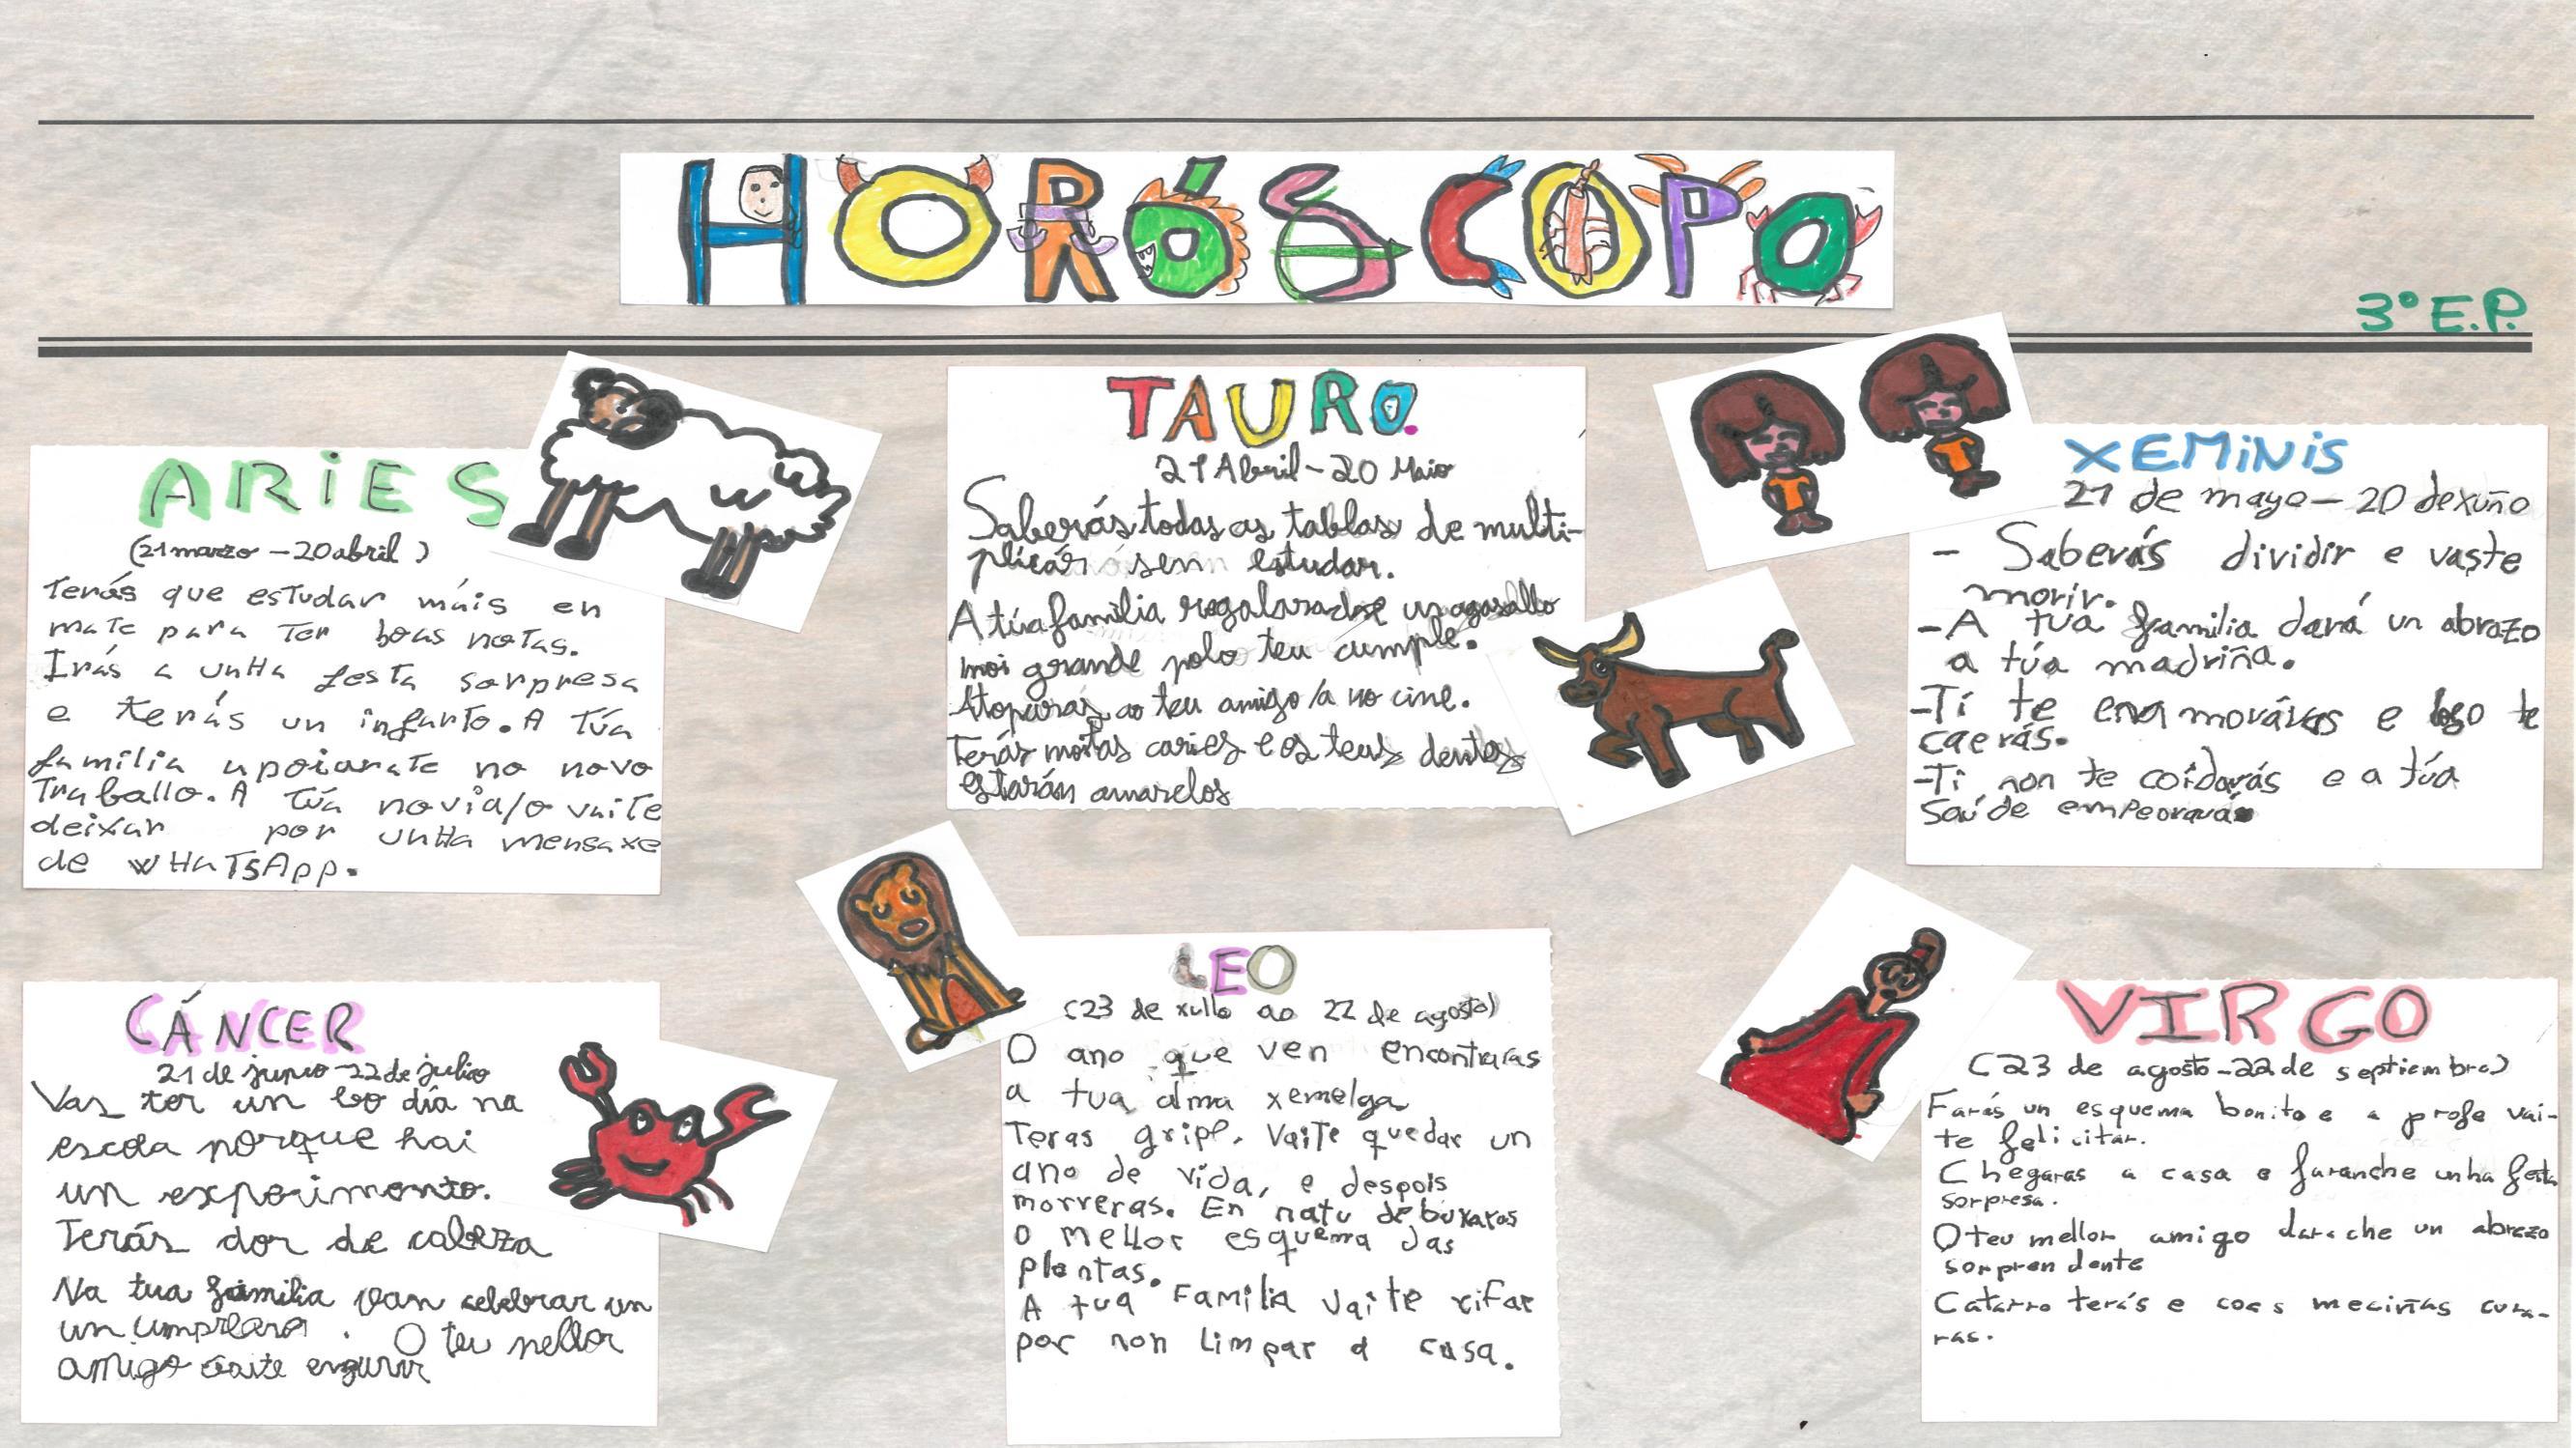 HORÓSCOPO
3º E.P.
ARIES
(21 marzo - 20 abril)
Terás que estudar máis en
mate para ter boas notas.
Irás a unha festa sorpresa
e terás un infarto. A túa
familia apoiarate no novo
traballo. A túa novia/o vaite
deixar por unha mensaxe
de WHATSApp.
TAURO.
21 Abril - 20 Maio
Saberás todas as tablas de multi-
plicár sen estudar.
A túa familia regalarache un agasallo
moi grande polo teu cumple.
Atoparás ao teu amigo/a no cine.
Terás moitas caries e os teus dentes
estarán amarelos
XEMINIS
21 de mayo - 20 de xuño
- Saberás dividir e vaste
morir.
- A túa familia dará un abrazo
a túa madriña.
- Ti te enamorarás e logo te
caerás.
- Ti non te coidarás e a túa
saúde empeorará
CÁNCER
21 de junio - 22 de julio
Vas ter un bo día na
escola porque hai
un experimento.
Terás dor de cabeza
Na tua familia van celebrar un
un . O teu mellor
amigo vaite
LEO
(23 de xullo ao 22 de agosto)
O ano que ven encontraras
a tua alma xemelga
Teras gripe. Vaite quedar un
ano de vida, e despois
morreras. En natu debuxaras
o mellor esquema das
plantas.
A tua familia vaite rifar
por non limpar a casa.
VIRGO
(23 de agosto - 22 de septiembre)
Farás un esquema bonito e a profe vai-
te felicitar.
Chegaras a casa e faranche unha festa
sorpresa.
O teu mellor amigo darache un abrazo
sorprendente
Catarro terás e coas meciñas cura-
ras.